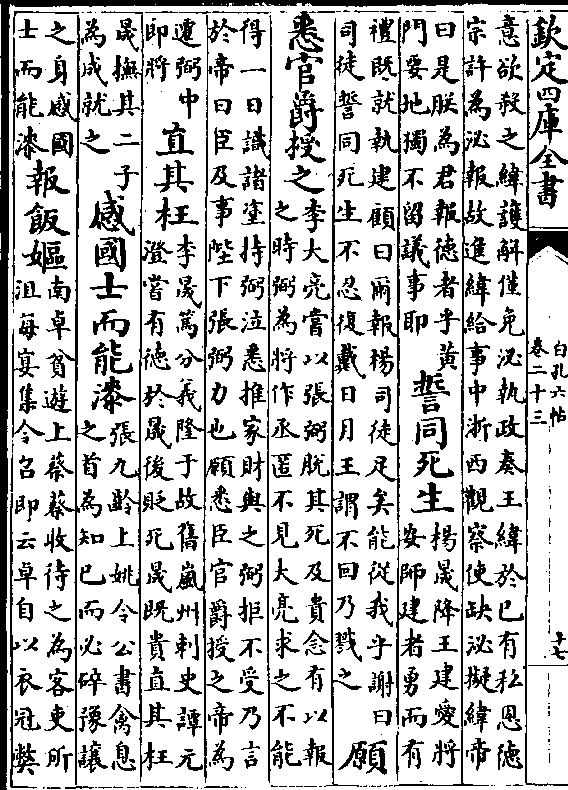 欽定四庫全書
白孔六帖
卷二十三
十七
意欲殺之緯護解僅免泌執政奏王緯於已有私恩德
宗許為泌報故進緯給事中浙西觀察使缺泌擬緯帝
曰是朕為君報德者乎黃
門要地獨不留議事耶
誓同死生
楊晟降王建愛將
安師建者勇而有
禮既就執建顧曰爾報楊司徒足矣能從我乎謝曰
司徒誓同死生不忍復戴日月王謂不回乃戮之
願
悉官爵授之
李大亮嘗以張弼脫其死及貴念有以報
之時弼為將作丞匿不見大亮求之不能
得一日識諸塗持弼泣悉推家財與之弼拒不受乃言
於帝曰臣及事陛下張弼力也願悉臣官爵授之帝為
遷弼中
郎將
直其枉
李晟篤分義隆于故舊嵐州刺史譚元
澄嘗有德於晟後貶死晟既貴直其枉
晟撫其二子
為成就之
感國士而能漆
張九齡上姚令公書禽息
之首為知已而必碎豫讓
之身感國
士而能漆
報飯嫗
南卓貧遊上蔡蔡收待之為客吏所
沮每宴集令召即云卓自以衣冠獘